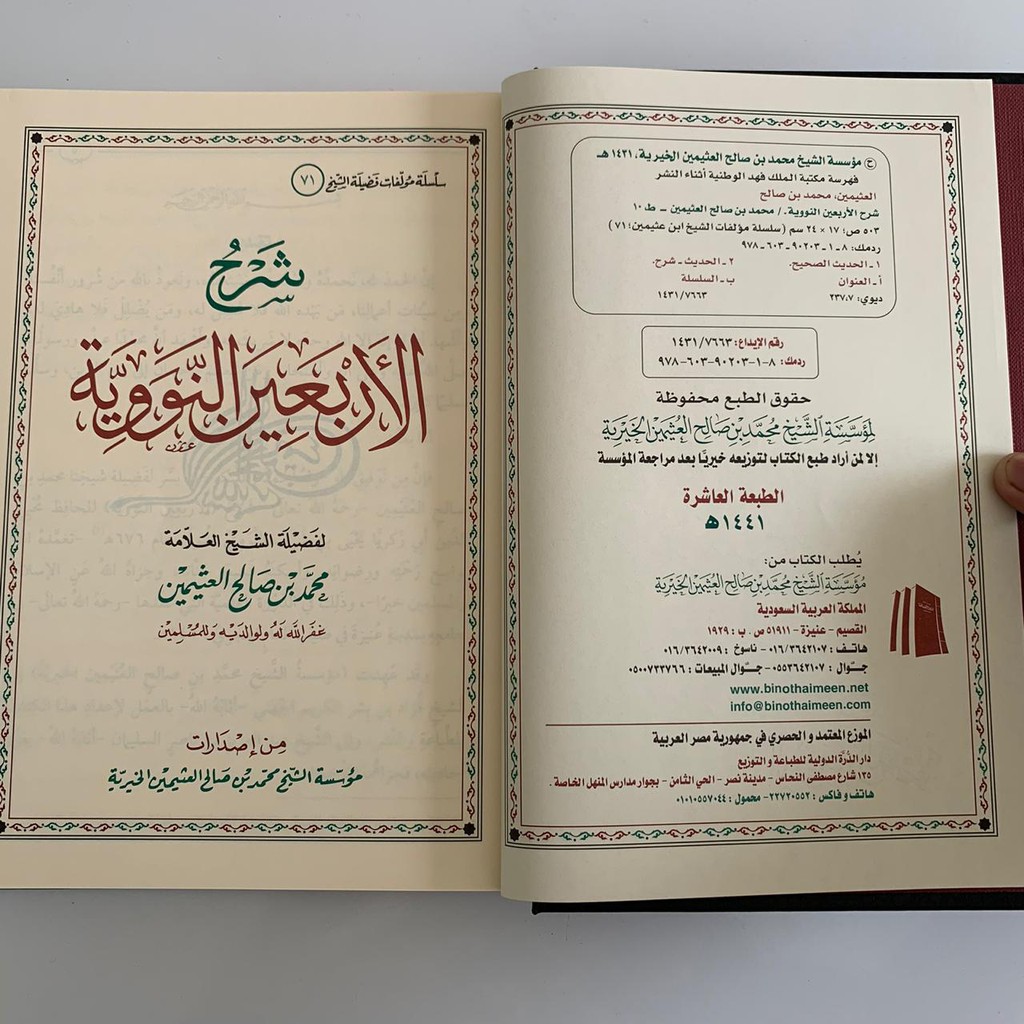 ح مؤسسة الشيخ محمد بن صالح العثيمين الخيرية، ١٤٣١ هـ
فهرسة مكتبة الملك فهد الوطنية أثناء النشر
العثيمين، محمد بن صالح
شرح الأربعين النووية. / محمد بن صالح العثيمين ـ ط ١٠
٥٠٣ ص؛ ١٧ × ٢٤ سم (سلسلة مؤلفات الشيخ ابن عثيمين؛ ٧١)
ردمك: ٨ ـ ١ ـ ٩٠٢٠٣ ـ ٦٠٣ ـ ٩٧٨
١ ـ الحديث الصحيح. ٢ ـ الحديث ـ شرح.
أ ـ العنوان ب ـ السلسلة
ديوي: ٢٣٧،٧ ١٤٣١/٧٦٦٣
رقم الإيداع: ١٤٣١/٧٦٦٣
ردمك: ٨-١-٩٠٢٠٣-٦٠٣-٩٧٨
حقوق الطبع محفوظة
لمؤسسة الشيخ محمد بن صالح العثيمين الخيرية
إلا لمن أراد طبع الكتاب لتوزيعه خيريًا بعد مراجعة المؤسسة
الطبعة العاشرة
١٤٤١ هـ
يُطلب الكتاب من:
مؤسسة الشيخ محمد بن صالح العثيمين الخيرية
المملكة العربية السعودية
القصيم - عنيزة - ٥١٩١١ ص . ب : ١٩٢٩
هاتف : ٠١٦/٣٦٤٢١٠٧ - ناسوخ : ٠١٦/٣٦٤٢٠٠٩
جوال : ٠٥٥٣٦٤٢١٠٧ - جوال المبيعات : ٠٥٠٠٧٣٣٧٦٦
www.binothaimeen.net
info@binothaimeen.com
الموزع المعتمد و الحصري في جمهورية مصر العربية
دار الدُّرَّة الدولية للطباعة و التوزيع
١٣٥ شارع مصطفى النحاس - مدينة نصر - الحي الثامن - بجوار مدارس المنهل الخاصة .
هاتف و فاكس : ٢٢٧٢٠٥٥٢ - محمول : ٠١٠١٠٥٥٧٠٤٤
سلسلة مؤلفات فضيلة الشيخ ٧١
شرح
الأربعين النووية
لفضيلة الشيخ العلامة
محمد بن صالح العثيمين
غفر الله له ولوالديه وللمسلمين
من إصدارات
مؤسسة الشيخ محمد بن صالح العثيمين الخيرية